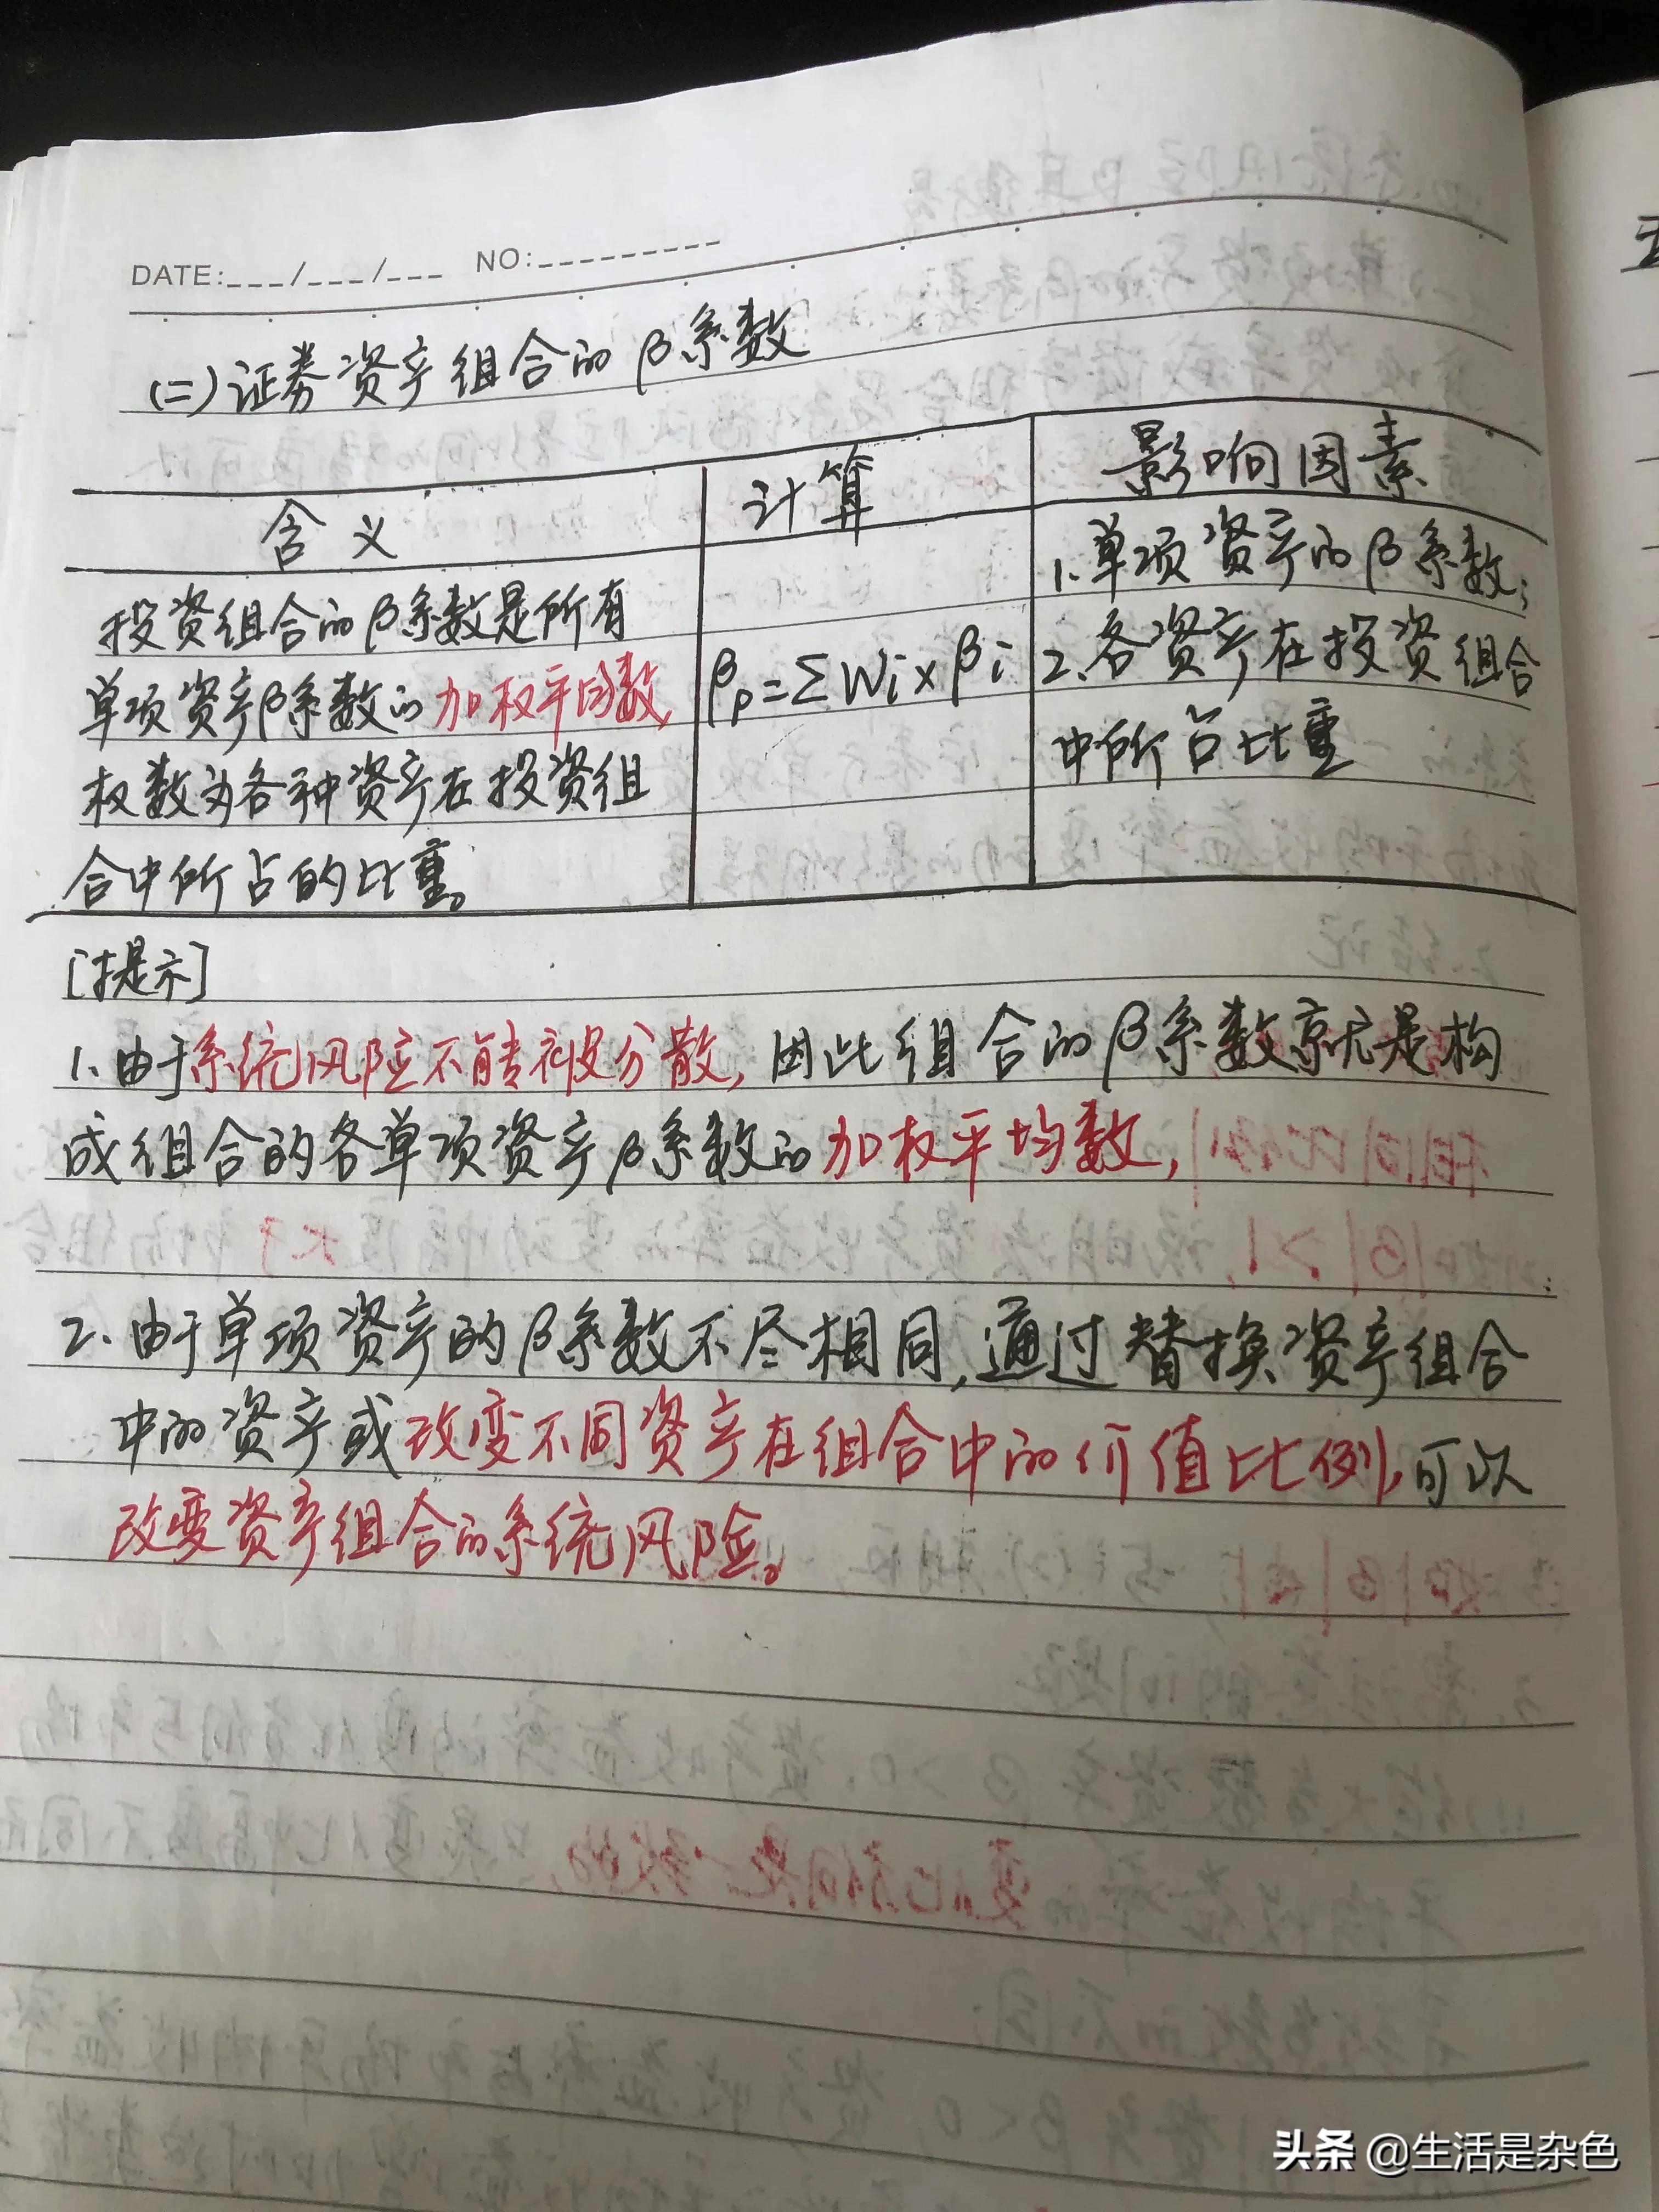 DATE:___/___/___ NO:_________
(二)证券资产组合的β系数
含义
计算
影响因素
投资组合的β系数是所有
单项资产β系数的加权平均数,
权数为各种资产在投资组
合中所占的比重。
βp=ΣWi×βi
1.单项资产的β系数;
2.各资产在投资组合
中所占比重
[提示]
1.由于系统风险不能被分散,因此组合的β系数就是构
成组合的各单项资产β系数的加权平均数,
2.由于单项资产的β系数不尽相同,通过替换资产组合
中的资产或改变不同资产在组合中的价值比例,可以
改变资产组合的系统风险。
头条 @生活是杂色